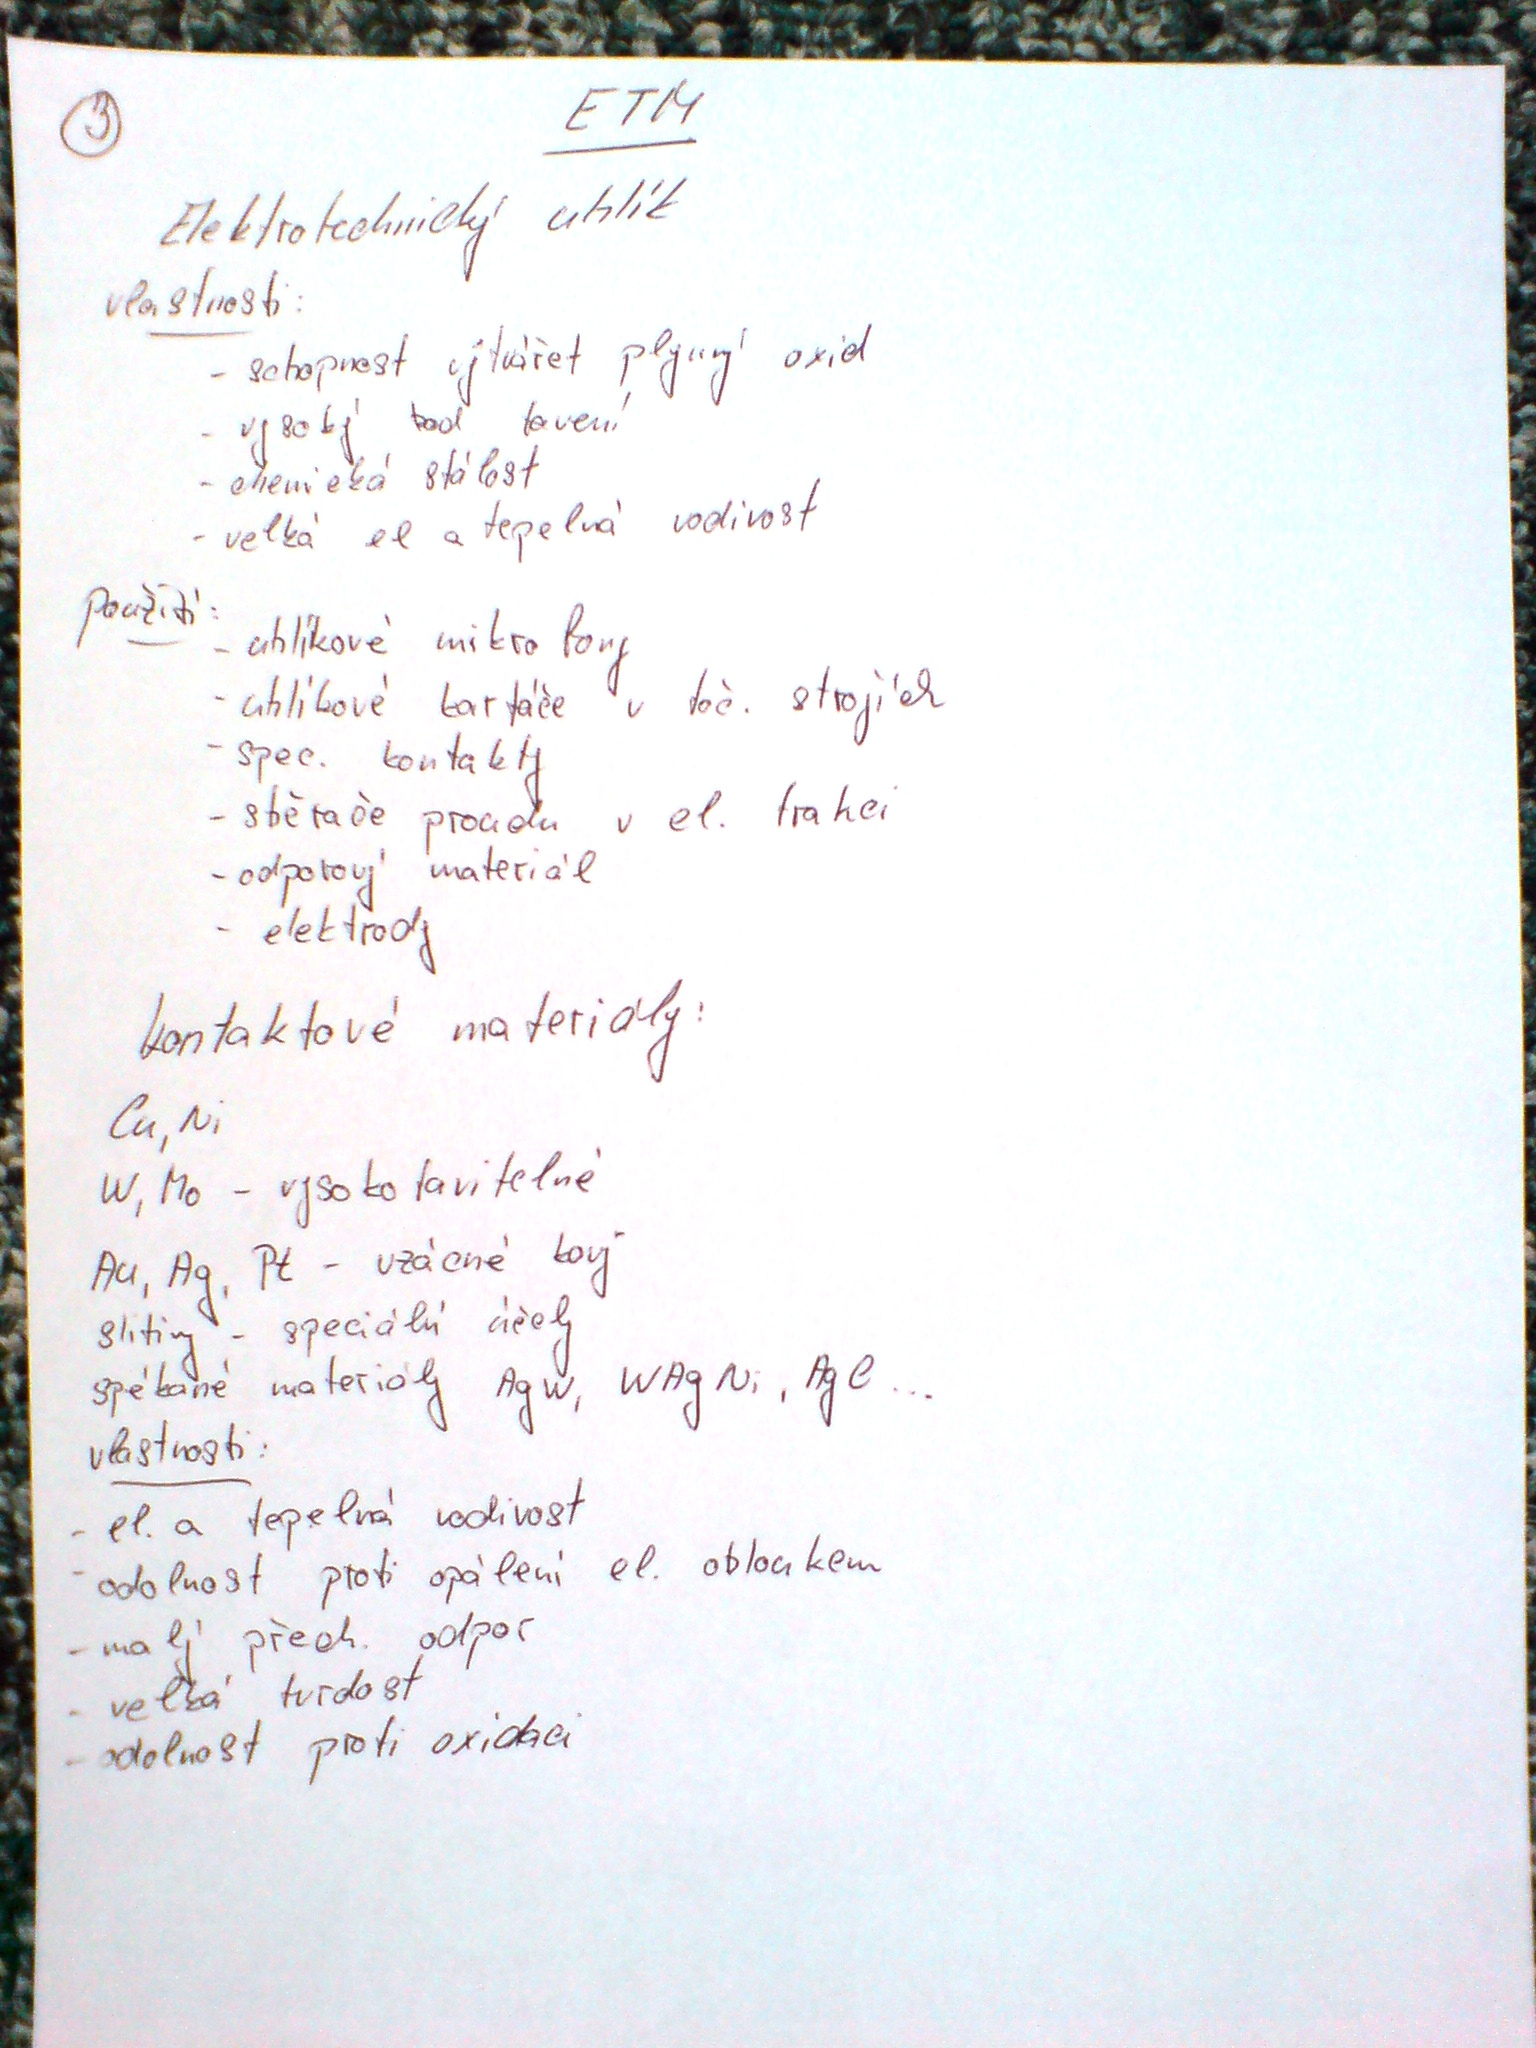 3
ETM
Elektrotechnický uhlík
vlastnosti:
- schopnost vytvářet plynný oxid
- vysoký bod tavení
- chemická stálost
- velká el a tepelná vodivost
použití:
- uhlíkové mikrofony
- uhlíkové kartáče v toč. strojích
- spec. kontakty
- sběrače proudu v el. trakci
- odporový materiál
- elektrody
kontaktové materiály:
Cu, Ni
W, Mo - vysokotavitelné
Au, Ag, Pt - vzácné kovy
slitiny - speciální účely
spékané materiály AgW, WAgNi, AgC...
vlastnosti:
- el. a tepelná vodivost
- odolnost proti opálení el. obloukem
- malý přech. odpor
- velká tvrdost
- odolnost proti oxidaci